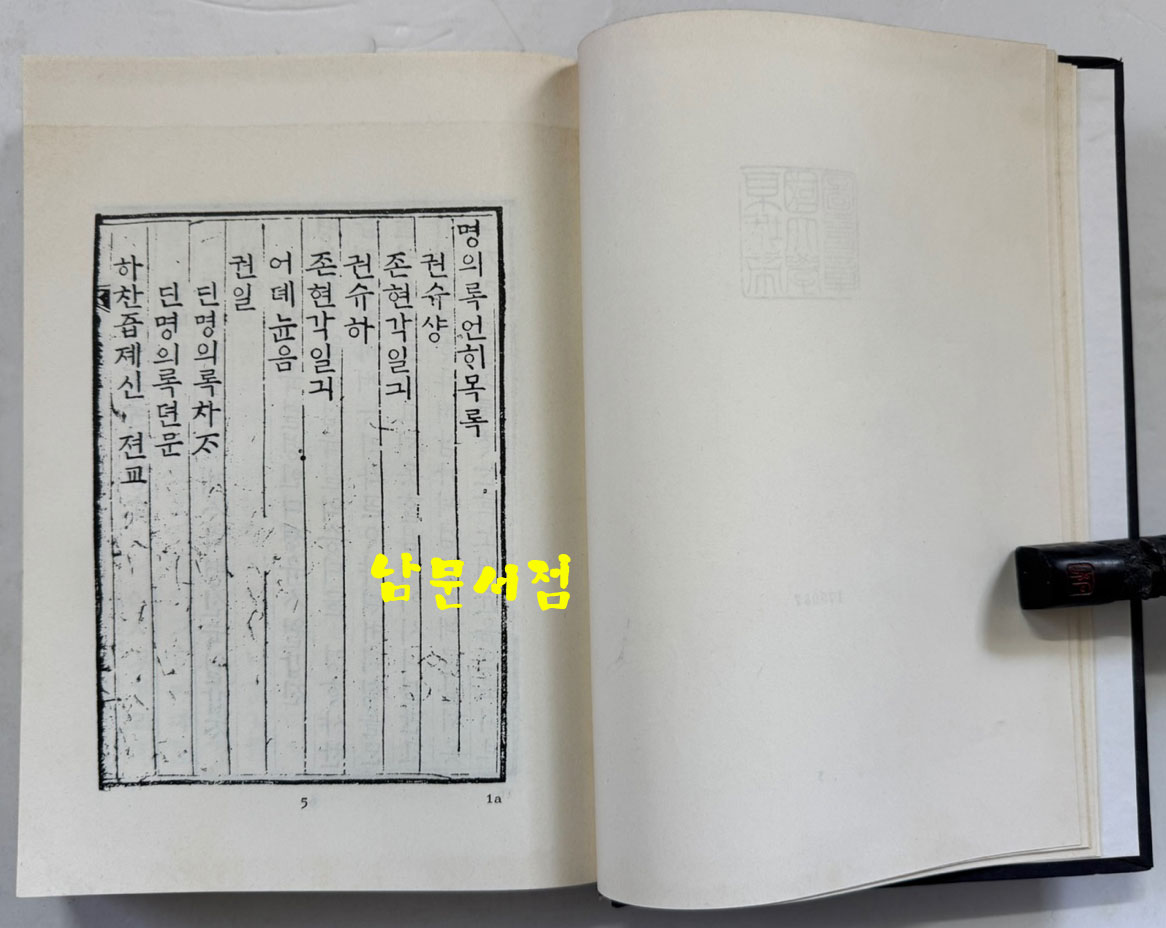 명의록언ᄒᆡ목록
권슈샹
존현각일긔
권슈하
존현각일긔
어뎨뉸음
권일
딘명의록차ᄌᆞ
딘명의록뎐문
하찬즙졔신 젼교
5
1a
남문서점